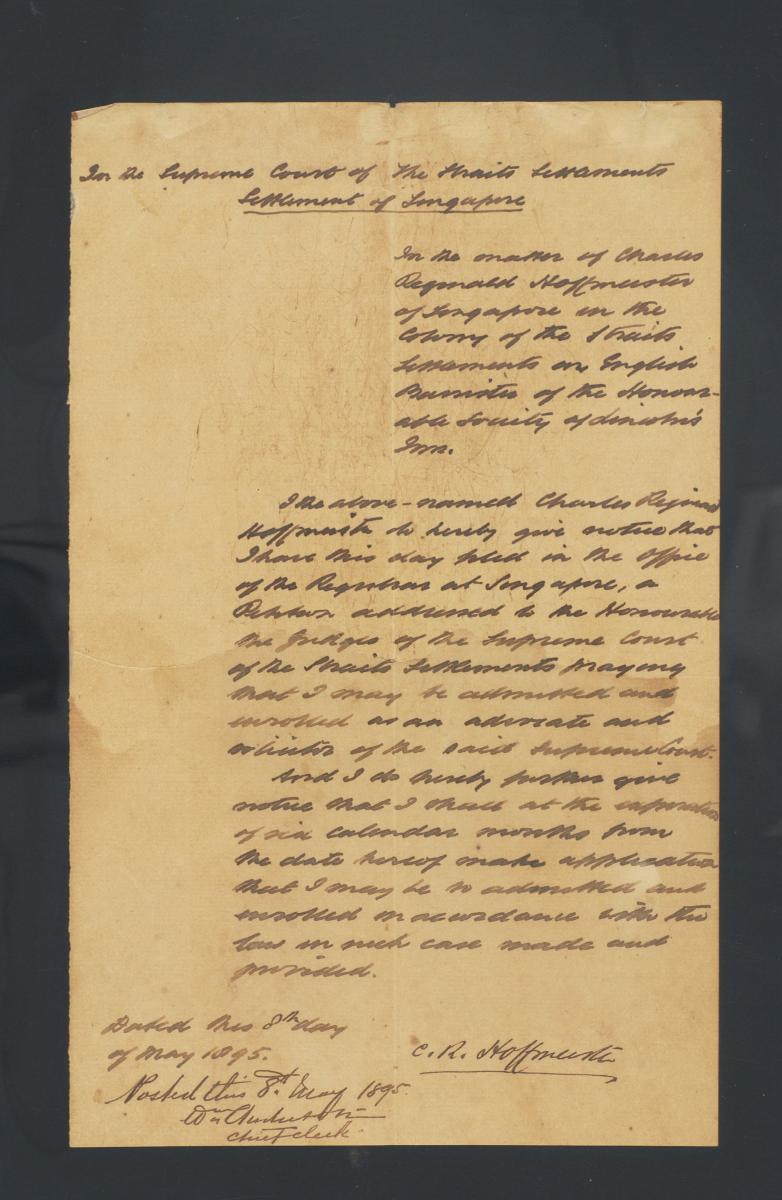 In the Supreme Court of the Straits Settlements
Settlement of Singapore
In the matter of Charles
Reginald Hoffmeister
of Singapore in the
Colony of the Straits
Settlements an English
Barrister of the Honour-
able Society of Lincoln's
Inn.
I the above-named Charles Reginald
Hoffmeister do hereby give notice that
I have this day filed in the Office
of the Registrar at Singapore, a
Petition addressed to the Honourable
the Judges of the Supreme Court
of the Straits Settlements praying
that I may be admitted and
enrolled as an advocate and
solicitor of the said Supreme Court.
And I do hereby further give
notice that I shall at the expiration
of six calendar months from
the date hereof make application
that I may be so admitted and
enrolled in accordance with the
law in such case made and
provided.
Dated this 8th day
of May 1895.
C. R. Hoffmeister
Posted this 8th May 1895.
Wm
Chief clerk